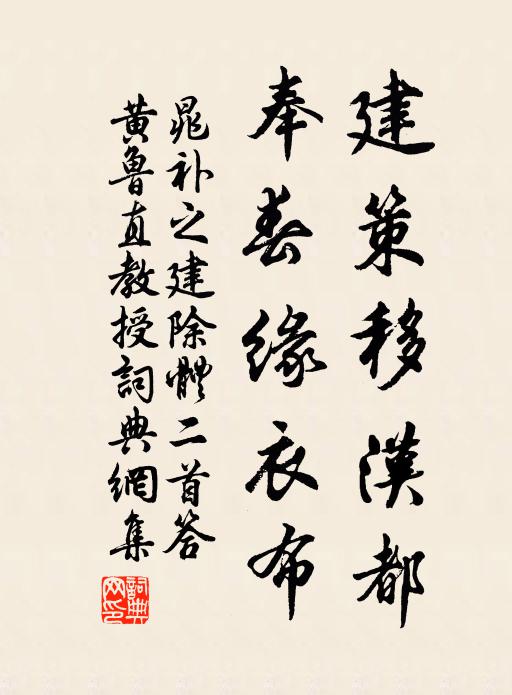 建策移漢都
奉春緣衣布
晁補之建除體二首答
黃魯直教授詞典網集
詞典
网印